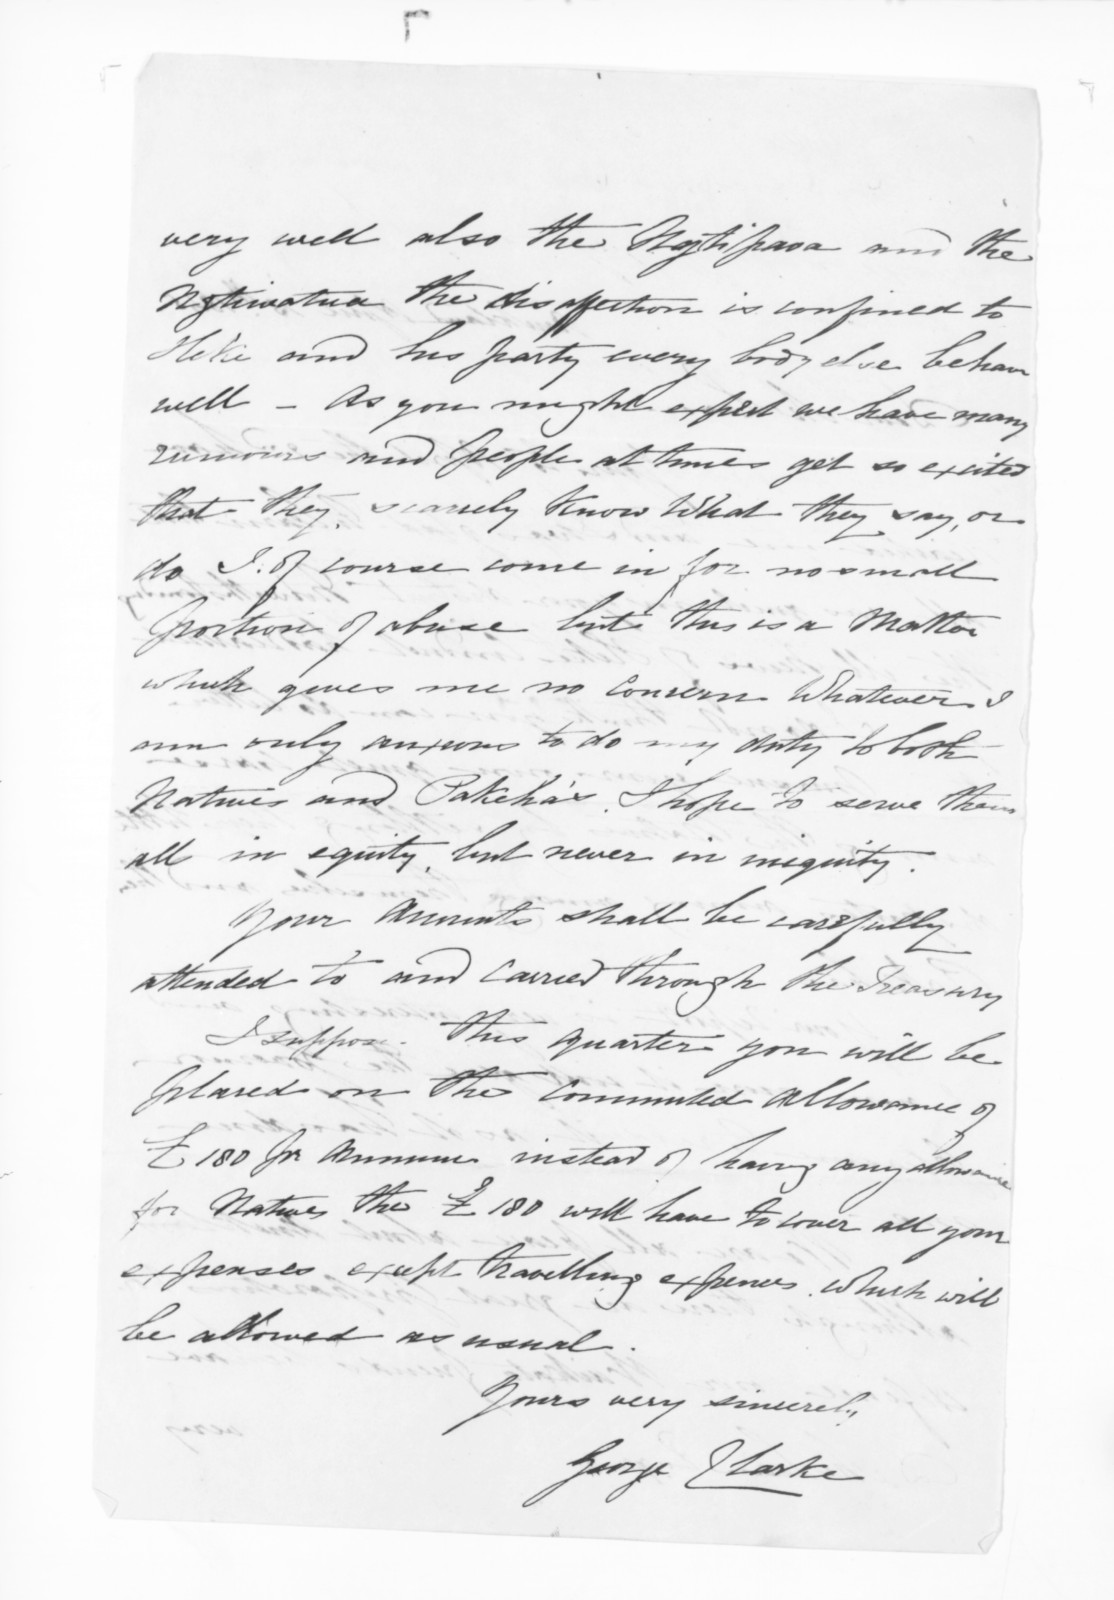 very well also the Ngtipaoa and the
Ngtiwatua the disaffection is confined to
Heke and his party every body else behave
well - As you might expect we have many
rumours and people at times get so excited
that they, scarcely know What they say, or
do I. of course come in for no small
portion of abuse but this is a Matter
which gives me no Concern Whatever I
am only anxious to do my duty to both
Natives and Pakeha's. I hope to serve them
all in equity, but never in iniquity.
Your Accounts shall be carefully
attended to and carried through the Treasury
I suppose this quarter you will be
placed on the Commuted Allowance of
£180 pr Annum instead of having any allowance
for Natives the £180 will have to cover all your
expenses except travelling expences which will
be allowed as usual.
Yours very sincerely
George Clarke